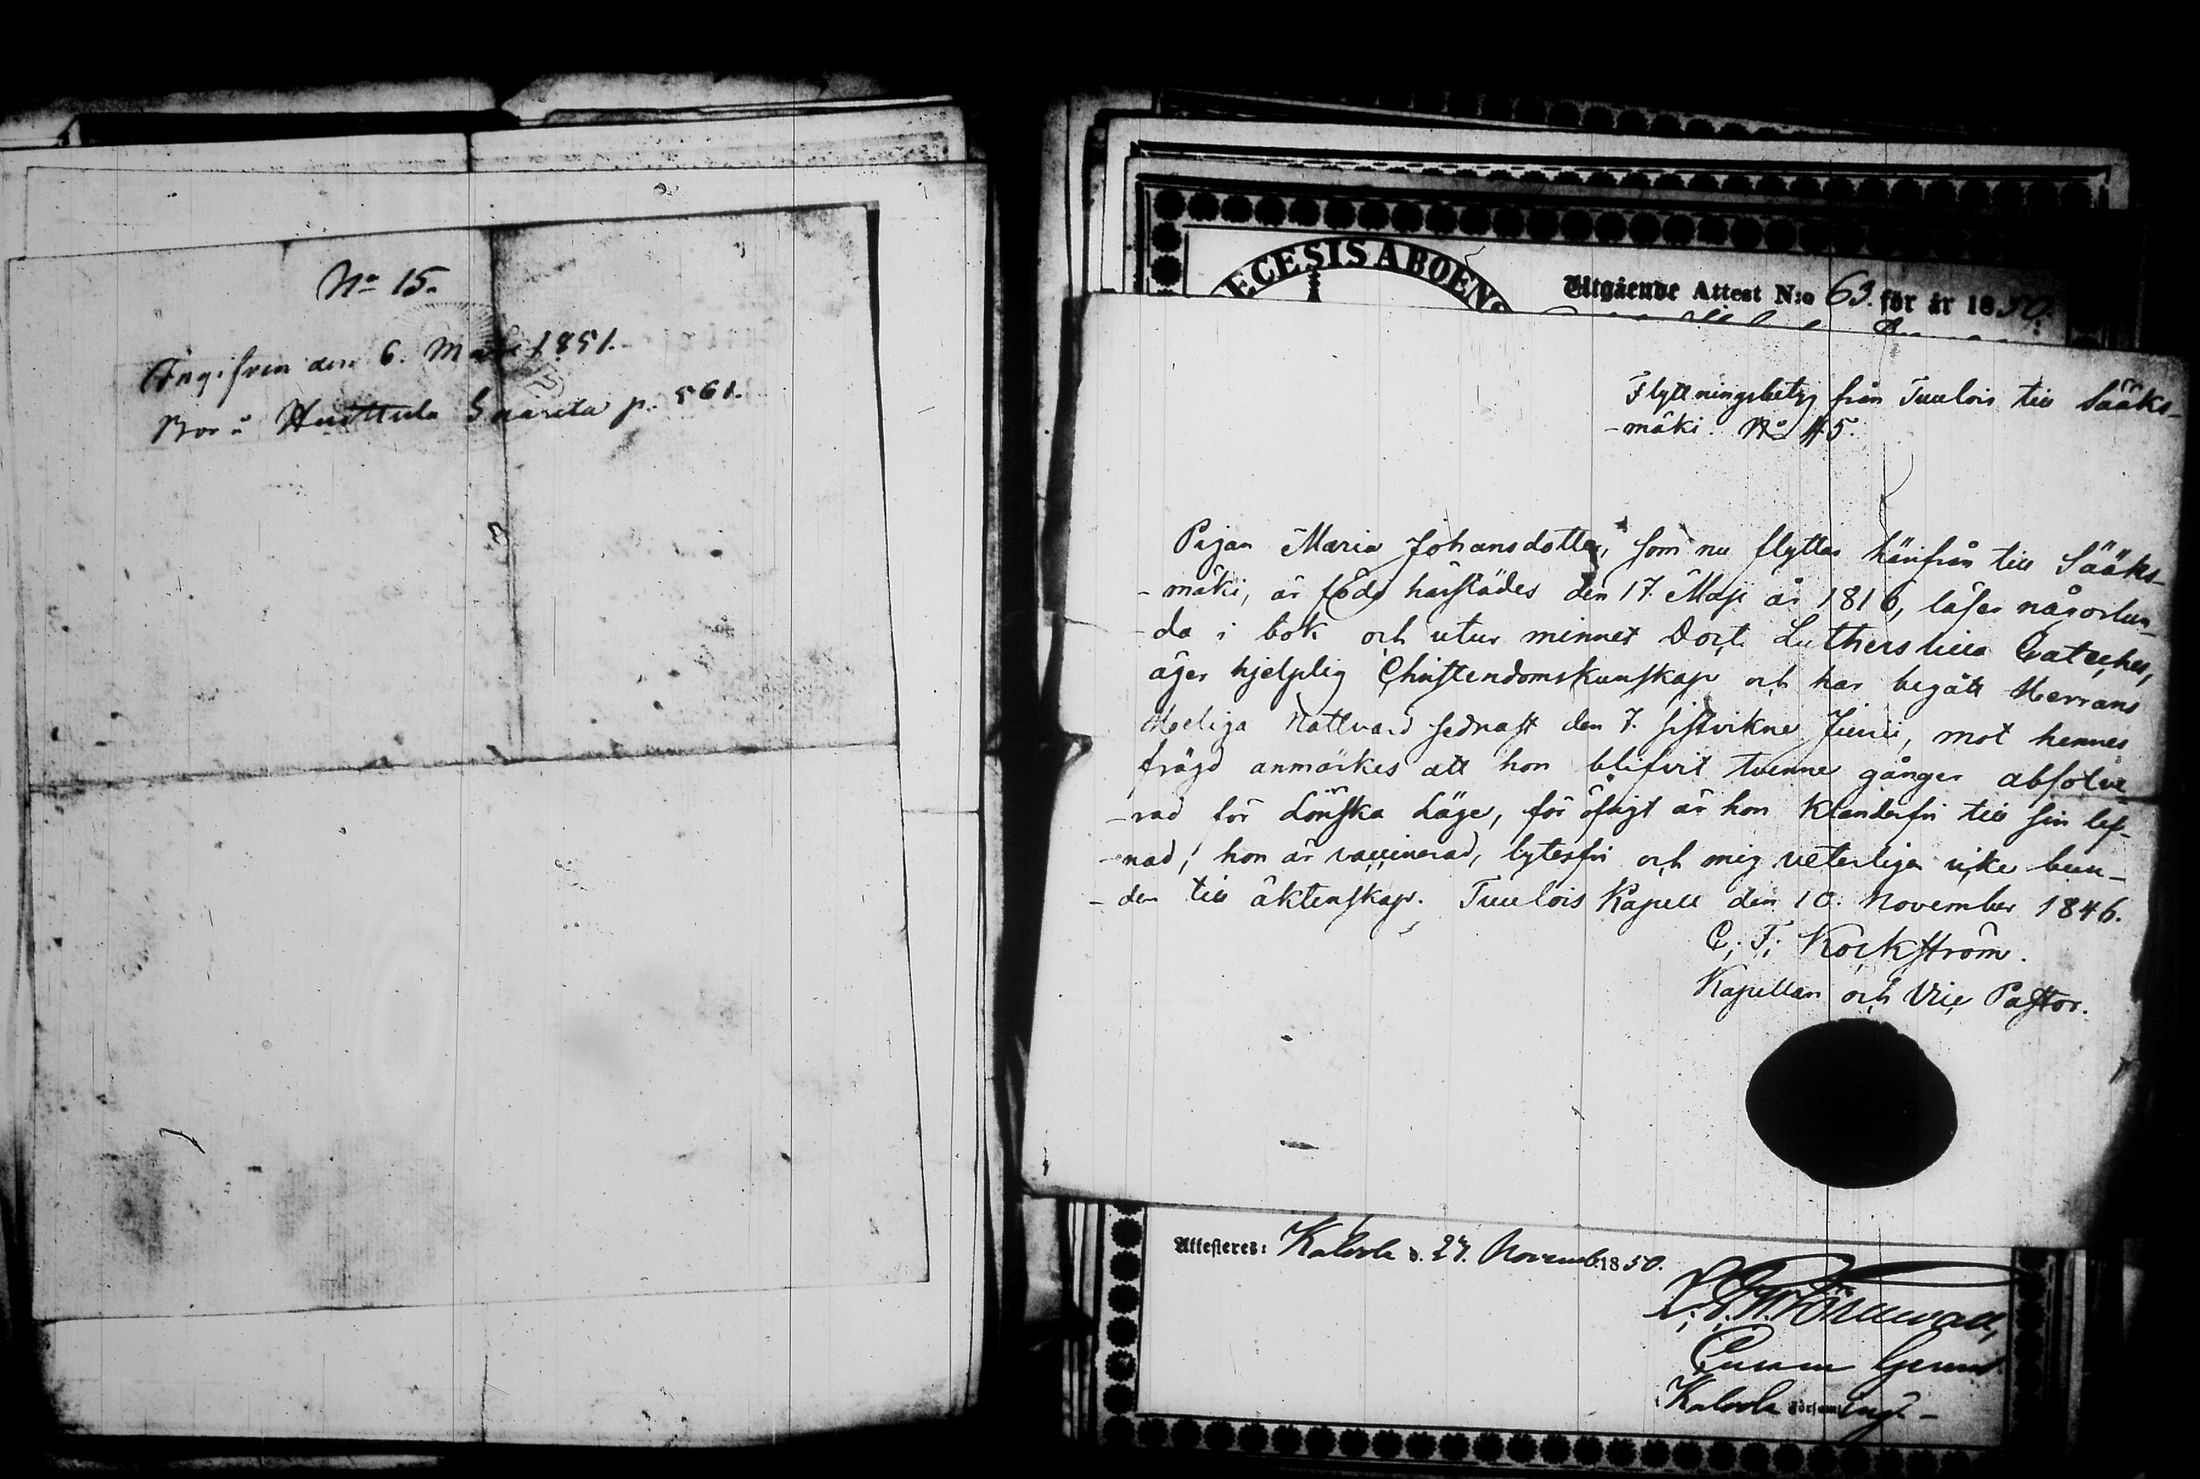 No 15.
Ingifven den 6. Mars 1851.
Bor i Huittula p. 561.
ECESIS ABOENS
Utgående Attest N:o 63. för år 1850.
Flyttningsbetyg från Tuulois till Sääks-
-mäki. No 45.
Pigan Maria Johansdotter, som nu flyttar härifrån till Sääks-
-mäki, är född härstädes den 17. Maji år 1816, läser någorlun-
-da i bok och utur minnet Doct. Luthers lilla Cateches,
äger hjelplig Christendomskunskap och har begått Herrans
Heliga Nattvard sednast den 7. sistvikne Junii, mot hennes
frägd anmärkes att hon blifvit tvenne gånger absolve-
-rad för Lönska Läge, för öfrigt är hon klanderfri till sin lef-
-nad, hon är vaccinerad, lytesfri och mig veterligen icke bun-
-den till äktenskap. Tuulois Kapell den 10. November 1846.
C. F. Kockström.
Kapellan och Vice Pastor.
Attesteras: Kalvola d. 27. Novemb. 1850.
Kalvola församling